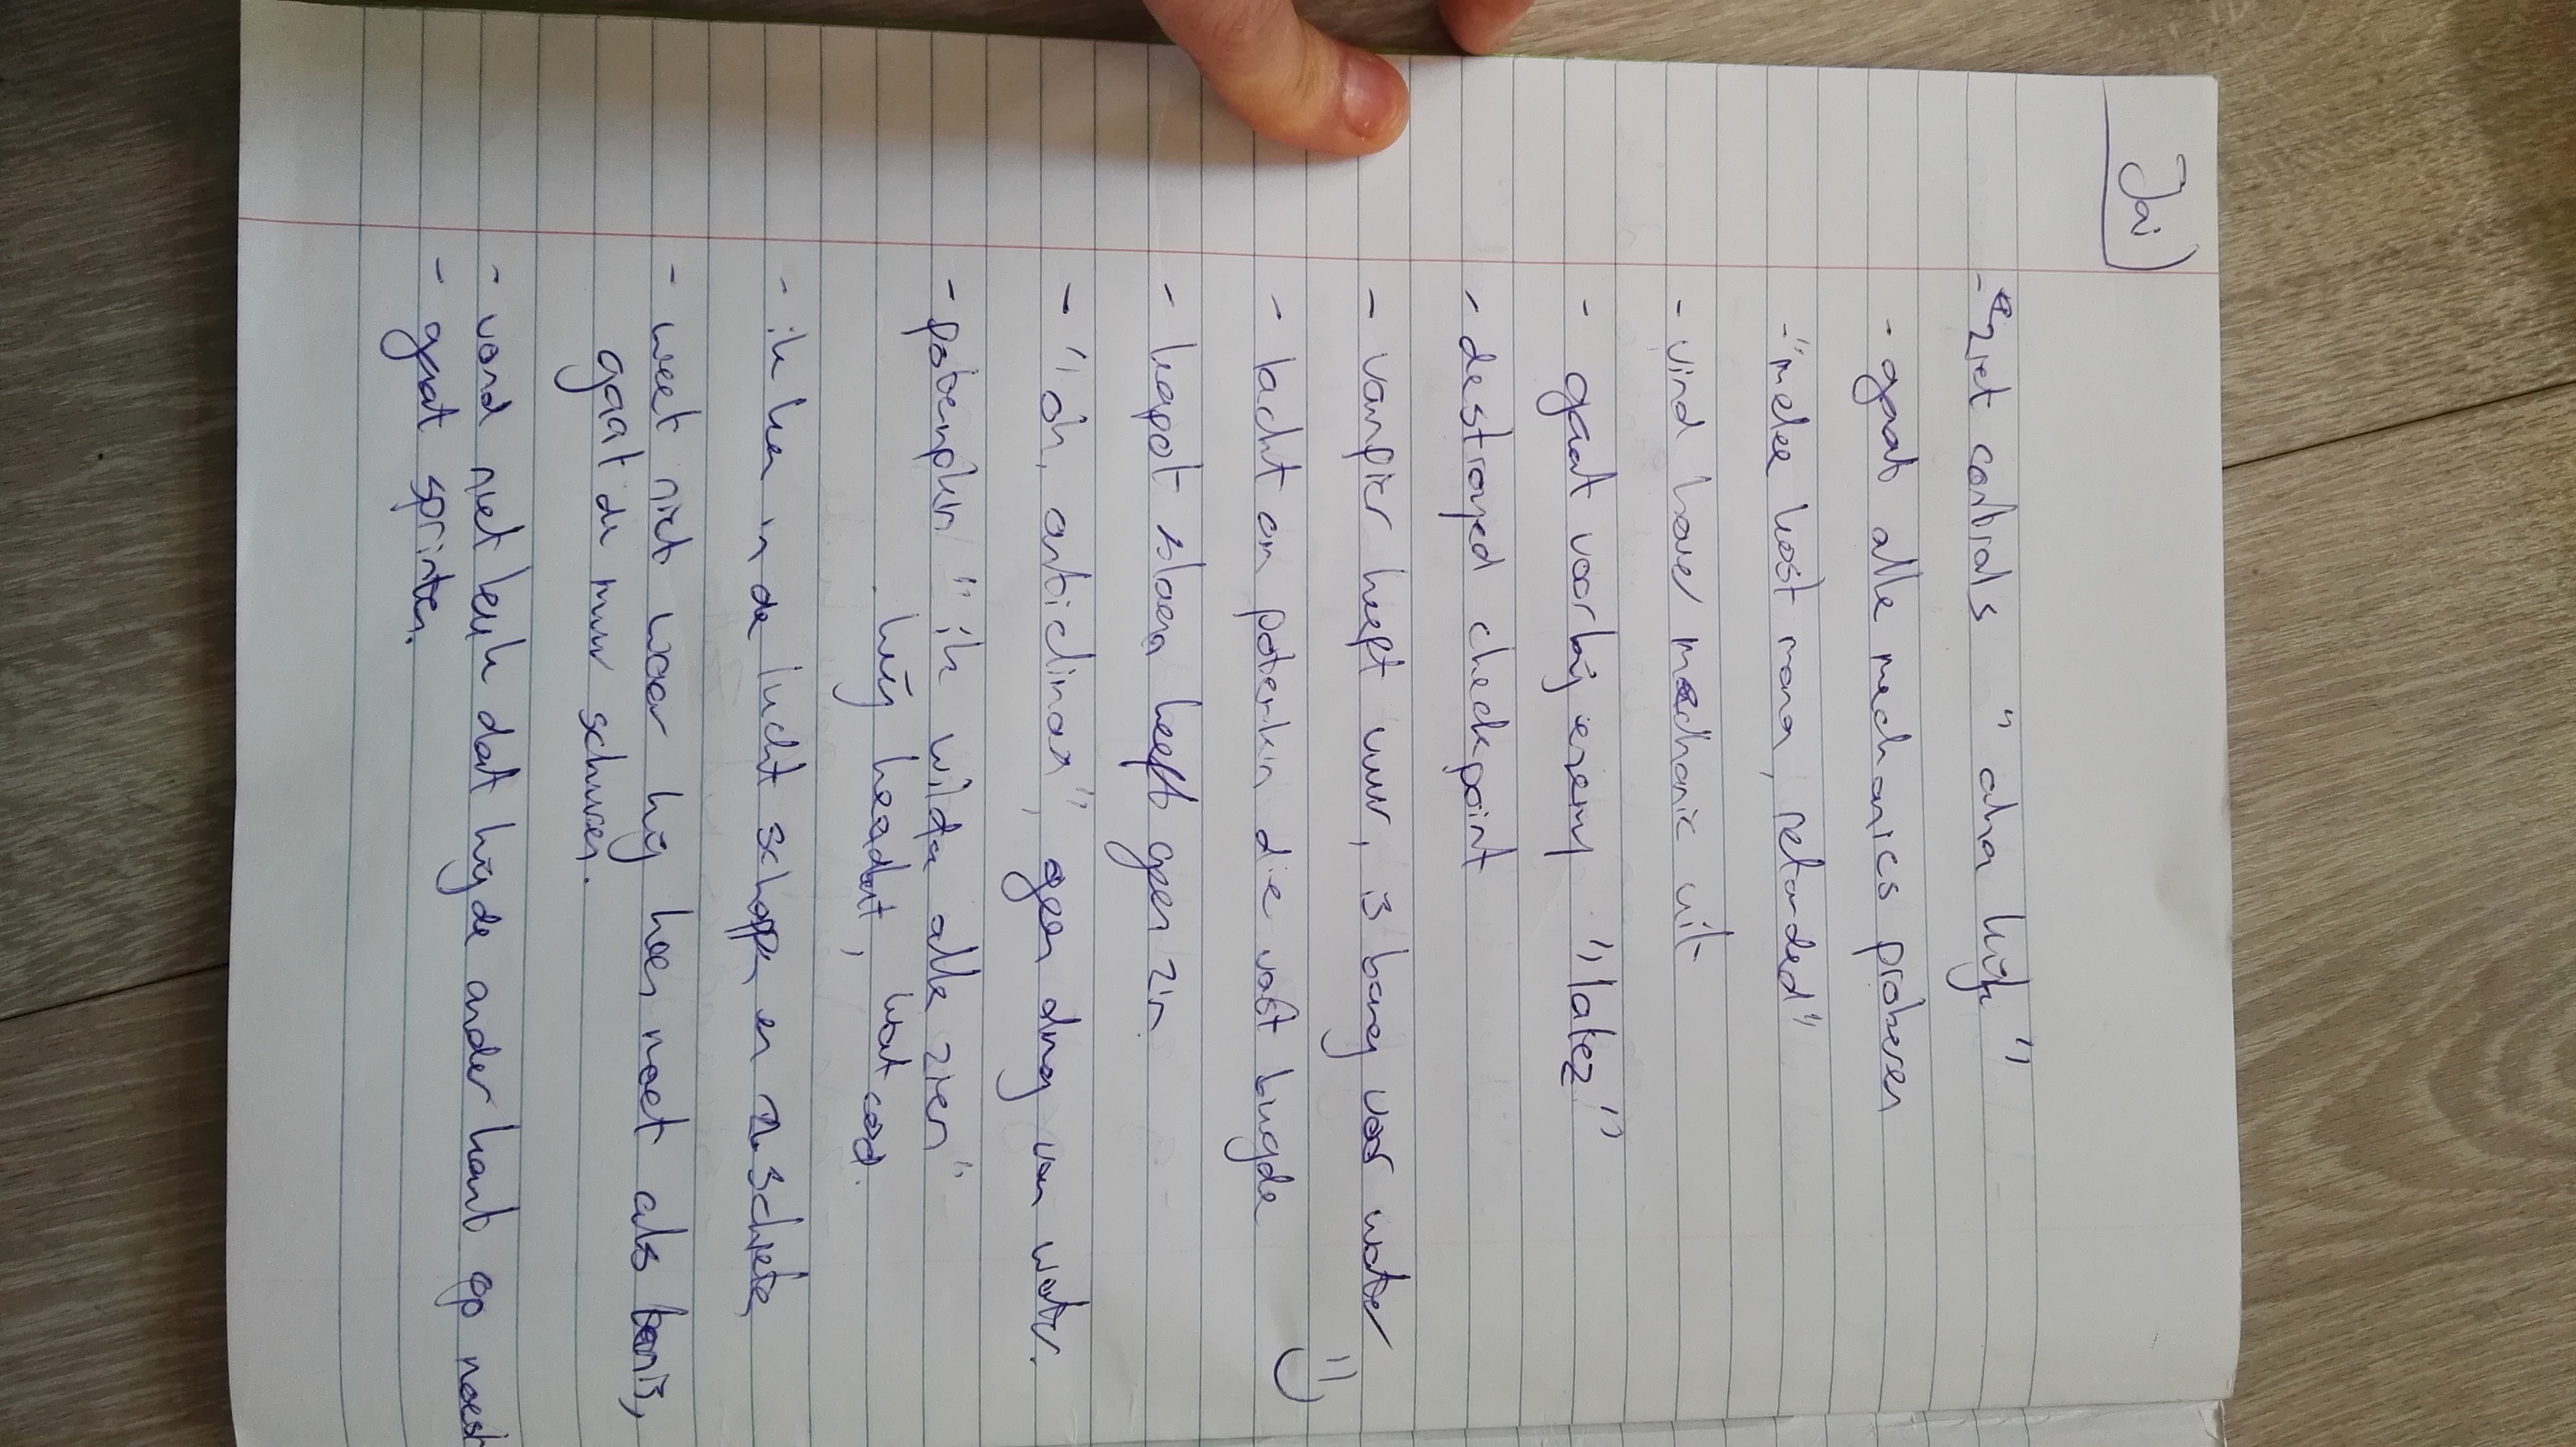 Jai
- ziet controls "aha kijk"
- gaat alle mechanics proberen
- "melee kost mana, retarded"
- vind hover mechanic uit
- gaat voorbij enemy "latez"
- destroyed checkpoint
- vampier heeft vuur, is bang voor water
- lacht om potemkin die vast bugde :)
- kapot slaan heeft geen zin.
- "oh, anticlimax", geen dmg van water.
- potemkin "ik wilde alle zien"
hij headbut, wat cool.
- ik kan in de lucht schoppen en 2x schieten
- weet niet waar hij heen moet als banis,
gaat de muur schuren.
- vond niet leuk dat hij de ander kant op moest
- gaat sprinten.